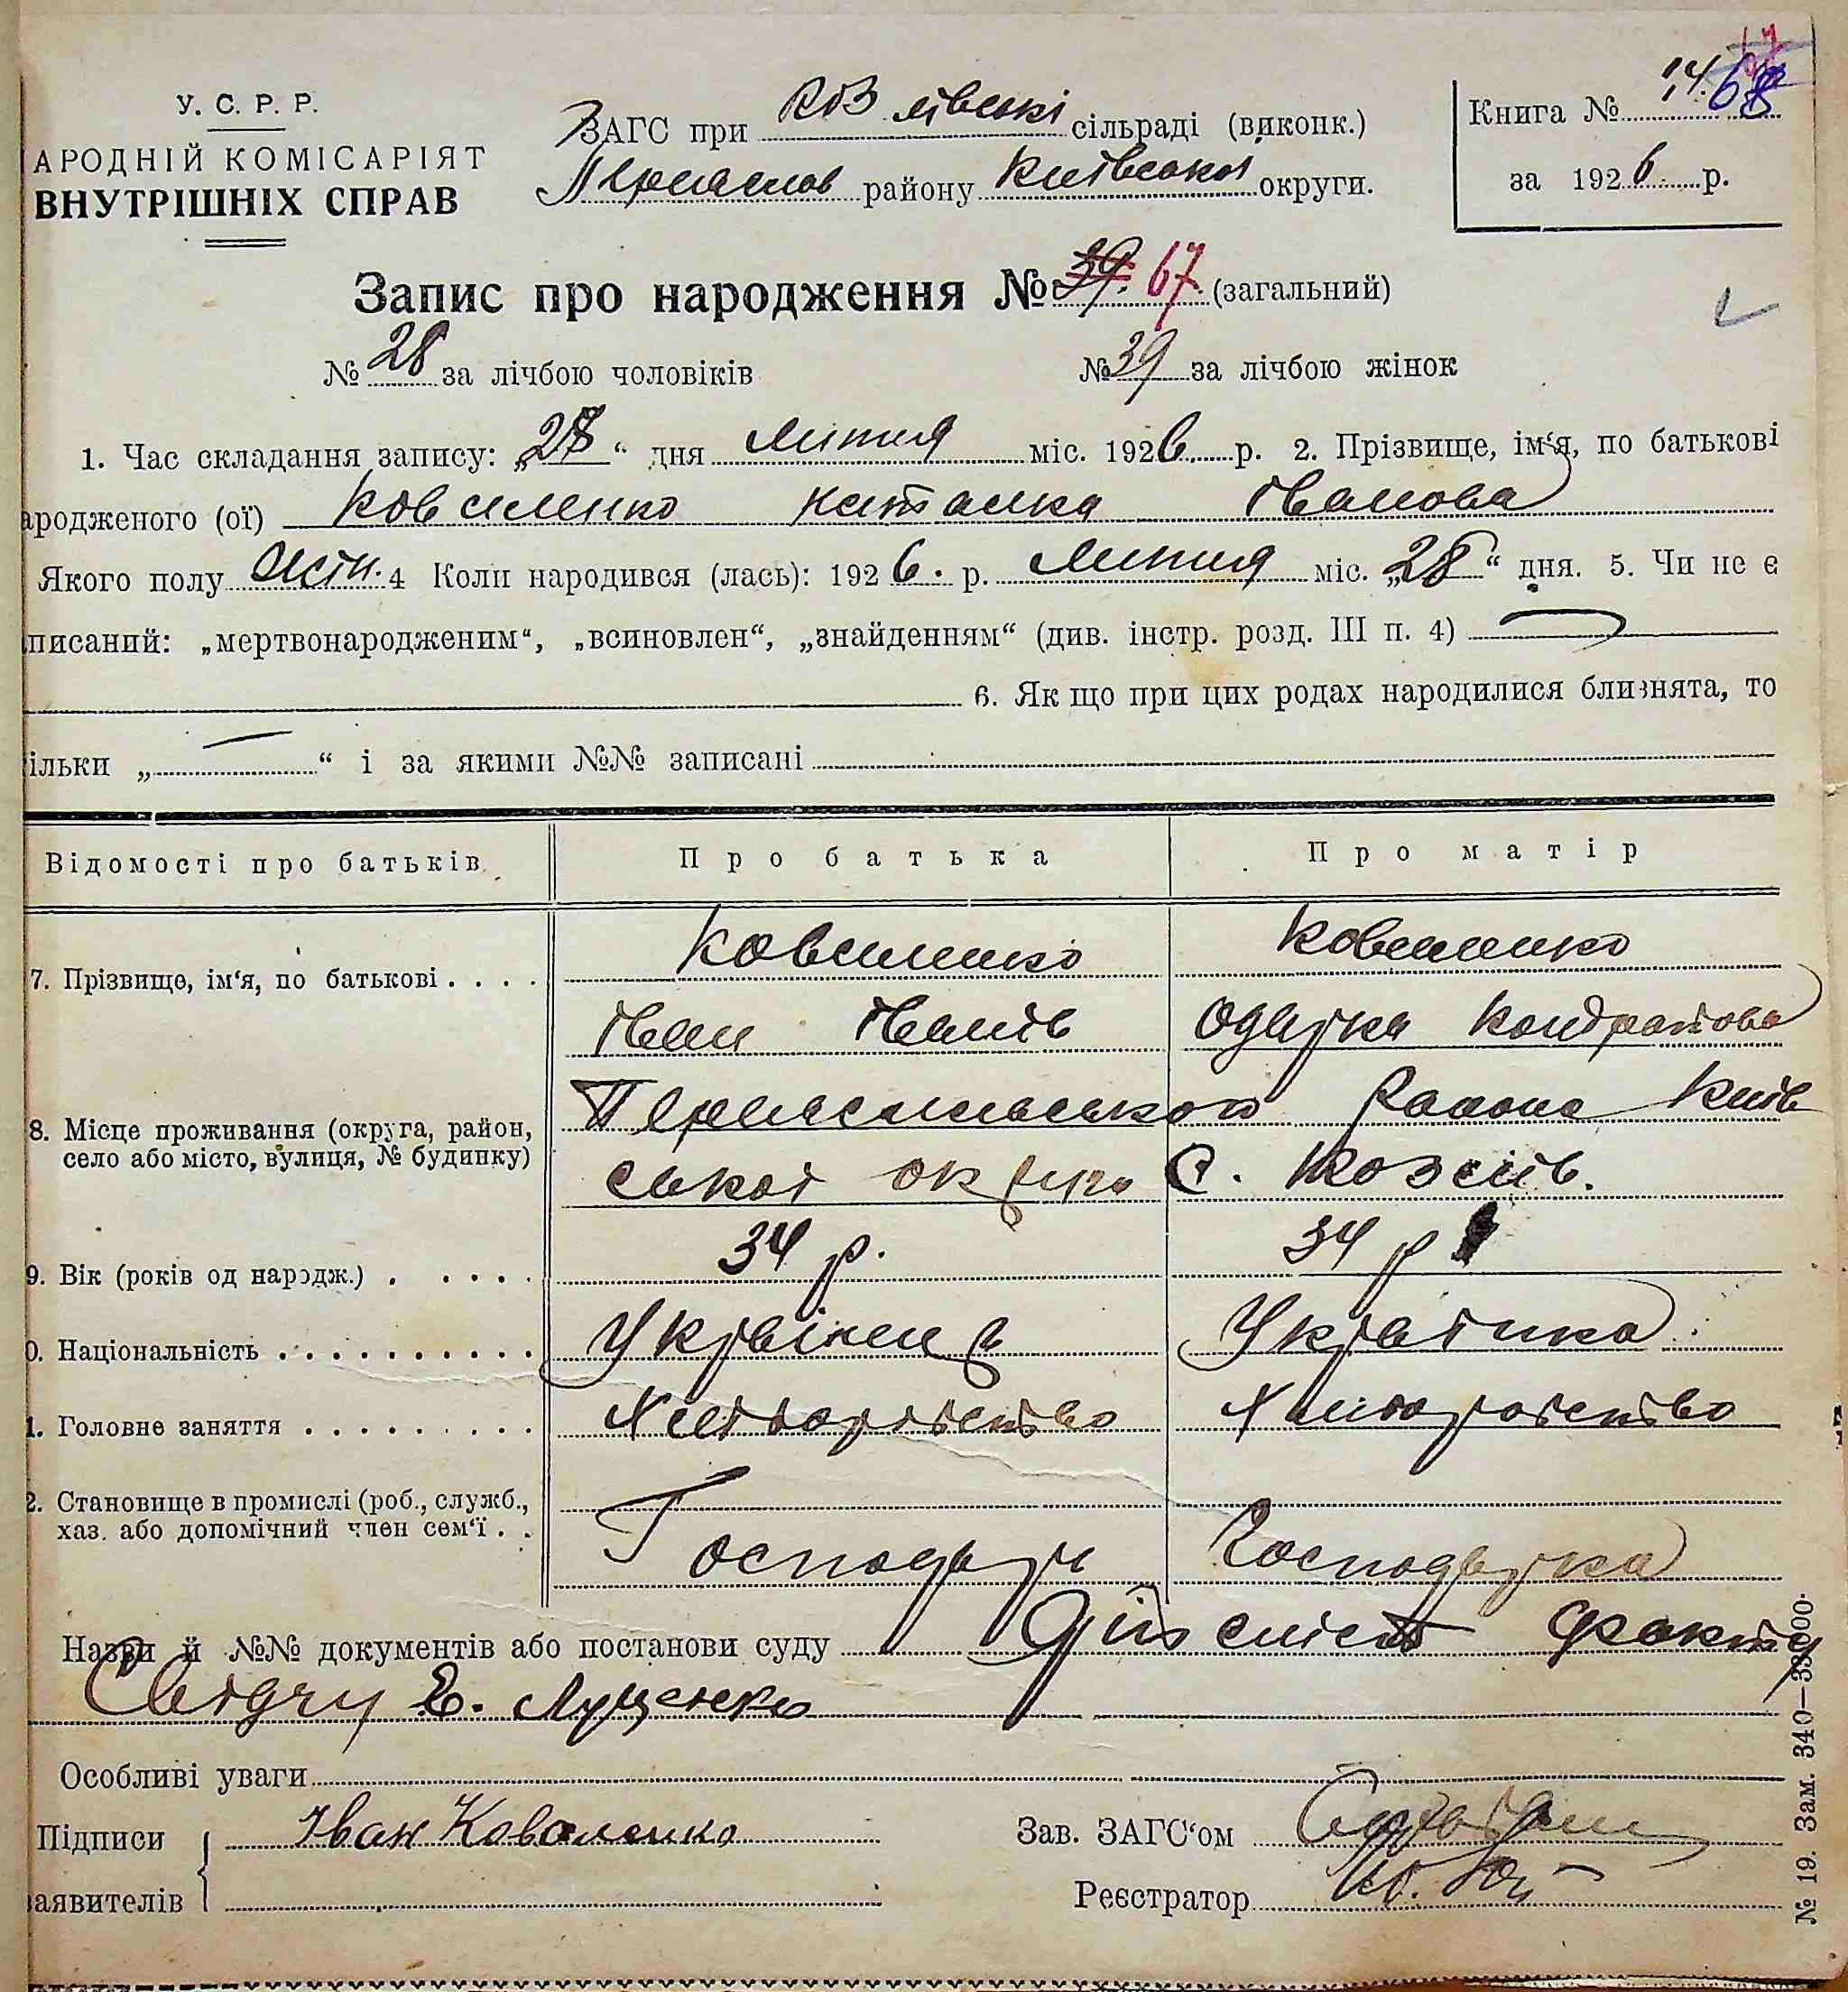 У. С. Р. Р.
АРОДНІЙ КОМІСАРІЯТ
ВНУТРІШНІХ СПРАВ
ЗАГС при сільраді (виконк.)
району Київської округи.
Книга №
за 1926 р.
Запис про народження № 39. 67 (загальний)
№ 28 за лічбою чоловіків
№ 39 за лічбою жінок
1. Час складання запису: „28“ дня липня міс. 1926 р. 2. Прізвище, ім‘я, по батькові
ародженого (ої) Коваленко Іванова
Якого полу жін. 4 Коли народився (лась): 1926. р. Липня міс. „28“ дня. 5. Чи не є
писаний: „мертвонародженим“, „всиновлен“, „знайденням“ (див. інстр. розд. III п. 4)
6. Як що при цих родах народилися близнята, то
ільки „ — “ і за якими №№ записані
Відомості про батьків
Про батька
Про матір
7. Прізвище, ім‘я, по батькові . . . .
Коваленко
Іван Іванів
Коваленко
Одарка Кондратова
8. Місце проживання (округа, район,
село або місто, вулиця, № будинку)
Района Київ
ської округи С.
9. Вік (років од народж.) . . . . .
34 р.
34 р
0. Національність . . . . . . . . . .
Українець
Українка
1. Головне заняття . . . . . . . . .
Хліборобство
Хліборобство
2. Становище в промислі (роб., служб.,
хаз. або допомічний член сем‘ї . .
Господарь
Господарка
Назви й №№ документів або постанови суду Дійсність факту
Свідчу Е. Луценко
Особливі уваги
Підписи
Іван Коваленко
Зав. ЗАГС‘ом
аявителів
Реєстратор
№ 19. Зам. 340—33000.